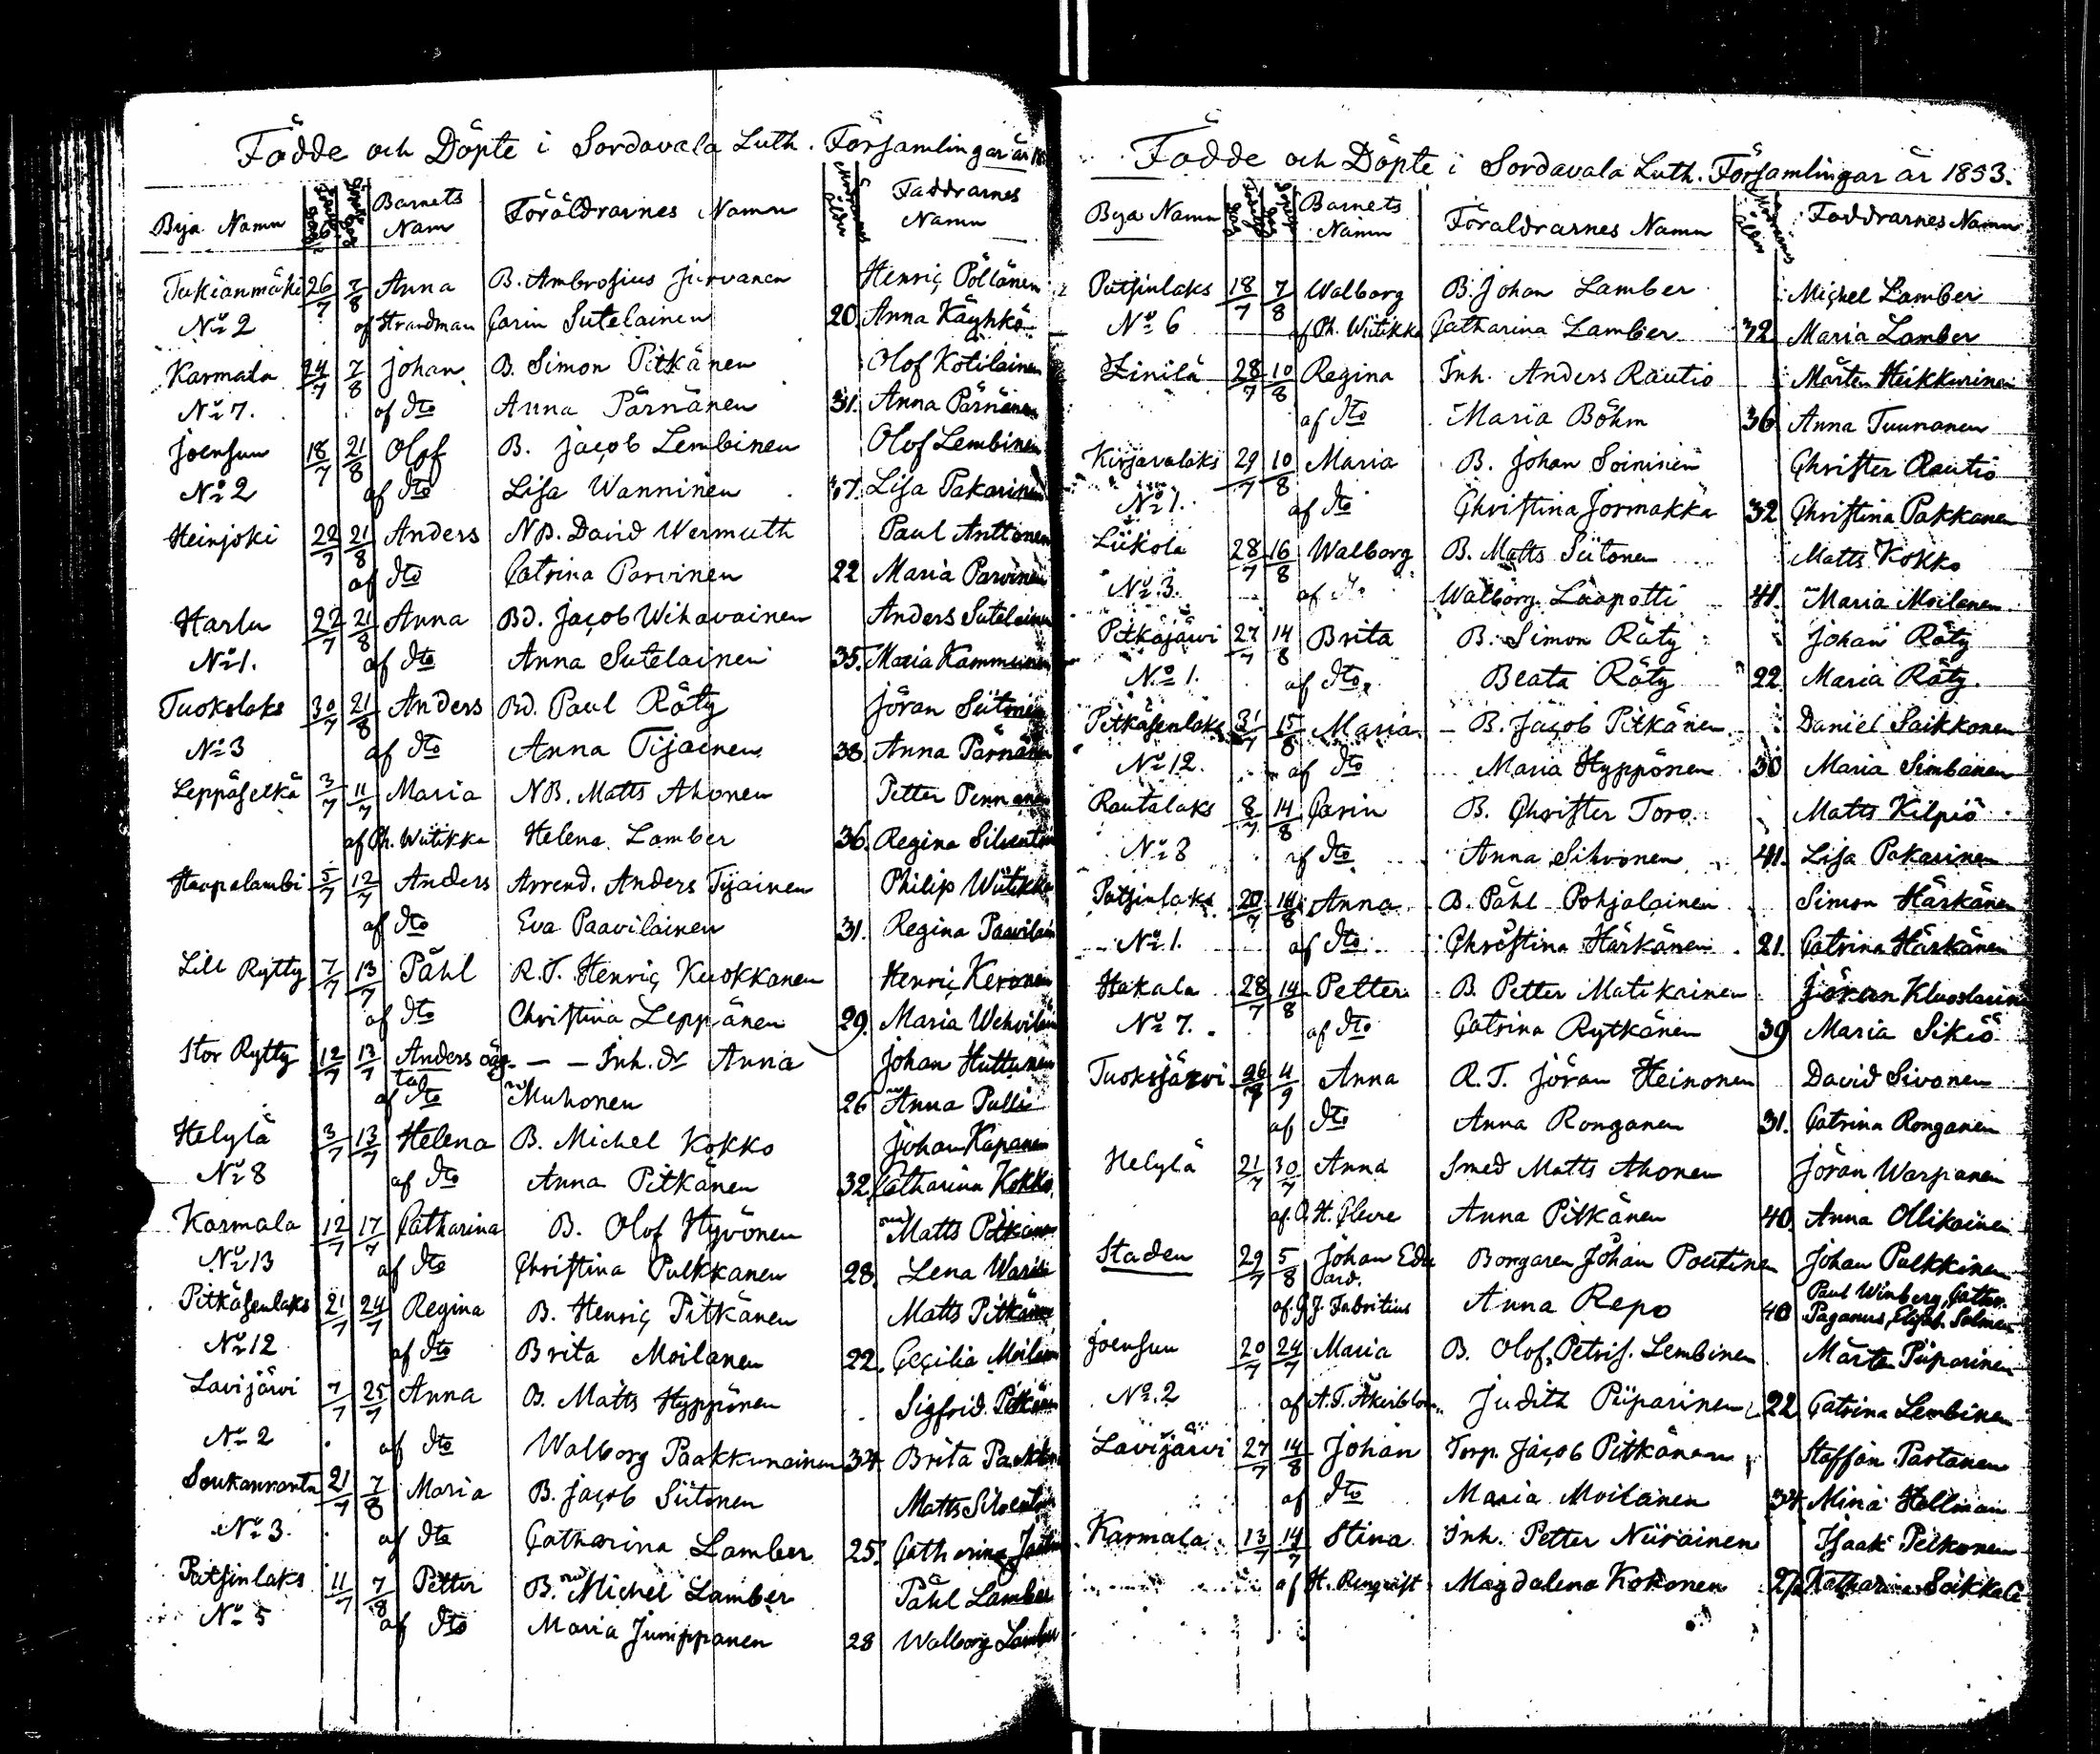 Födde och Döpte i Sordavala Luth. Församlingar år
Bya Namn Födelse Dag Döpelse Dag Barnets Namn Föräldrarnes Namn Modrarnes Ålder Faddrarnes Namn
Tukianmäki 26/7 7/8 Anna B. Ambrosius Hirvanen Henric Pöllänen
No 2 af Strandman Carin Sutelainen 20. Anna Käyhkö
Karmala 24/7 7/8 Johan B. Simon Pitkänen Olof Kotilainen
No 7. af Dto Anna Pärnänen 31. Anna Pärnänen
Joensuu 18/7 21/8 Olof B. Jacob Lembinen Olof Lembinen
No 2 af Dto Lisa Wanninen 37. Lisa Pakarinen
Heinjoki 22/7 21/8 Anders NB. David Wermuth Paul Anttonen
af Dto Catrina Parvinen 22 Maria Parvinen
Harlu 22/7 21/8 Anna Bd. Jacob Wihavainen Anders Sutelainen
No 1. af Dto Anna Sutelainen 35. Maria Kammunen
Tuokslaks 30/7 21/8 Anders Bd. Paul Räty Jöran Siitonen
No 3 af Dto Anna Tijainen 38. Anna Pärnänen
Leppäselkä 3/7 11/7 Maria NB. Matts Ahonen Petter Pennanen
af Ph. Wiitikka Helena Lamber 36. Regina Silventoin
Haapalambi 5/7 12/7 Anders Arrend. Anders Tijainen Philip Wiitikka
af Dto Eva Paavilainen 31. Regina Paavilain
Lill Rytty 7/7 13/7 Påhl R.T. Henric Kuokkanen Henric Keronen
af Dto Christina Leppänen 29. Maria Wehviläin
Stor Rytty 12/7 13/7 Anders oäg. — — Inh. Dr Anna Johan Huttunen
ta
af Dto Muhonen 26 Anna Pulli
Helylä 3/7 13/7 Helena B. Michel Kokko Johan Kapanen
No 8 af Dto Anna Pitkänen 32. Catharina Kokko.
Karmala 12/7 17/7 Catharina B. Olof Hyvönen Matts Pitkänen
No 13 af Dto Christina Pulkkanen 28. Lena Waris
Pitkäsenlaks 21/7 24/7 Regina B. Henric Pitkänen Matts Pitkänen
No 12 af Dto Brita Moilanen 22. Cecilia Moilan
Lavijärvi 7/7 25/7 Anna B. Matts Hyppönen Sigfrid. Pitkänen
No 2 af Dto Walborg Paakkunainen 34 Brita Paakkun
Soukanranta 21/7 7/8 Maria B. Jacob Siitonen Matts Silventoin
No 3. af Dto Catharina Lamber 25. Catharina
Patsinlaks 11/7 7/8 Petter B. Michel Lamber Påhl Lamber
No 5 af Dto Maria Jumppanen 28 Walborg Lamber
Födde och Döpte i Sordavala Luth. Församlingar år 1853.
Bya Namn Födelse Dag Döpelse Dag Barnets Namn Föraldrarnes Namn Modrarnes Ålder Faddrarnes Namn
Patsinlaks 18/7 7/8 Walborg B. Johan Lamber Michel Lamber
No 6 af Ph. Wiitikka Catharina Lamber 32 Maria Lamber
Zinilä 28/7 10/8 Regina Inh. Anders Rautio Mårten Heikkurinen
af Dto Maria Böhm 36 Anna Tuunanen
Kirjavalaks 29/7 10/8 Maria B. Johan Soininen Christer Rautio
No 1. af Dto Christina Jormakka 32 Christina Pakkanen
Liikola 28/7 16/8 Walborg B. Matts Siitonen Matts Kokko
No 3. af Dto Walborg Laapotti 41. Maria Moilanen
Pitkäjärvi 27/7 14/8 Brita B. Simon Räty Johan Räty
No 1. af Dto. Beata Räty 22. Maria Räty.
Pitkäsenlaks 31/7 15/8 Maria B. Jacob Pitkänen Daniel Saikkonen
No 12. af Dto Maria Hyppönen 30 Maria Simbanen
Rautalaks 8/7 14/8 Carin B. Christer Toro. Matts Kilpiö
No 8 af Dto Anna Sihvonen 41. Lisa Pakarinen
Patsinlaks 20/7 14/8 Anna B. Påhl Pohjalainen Simon Härkänen
No 1. af Dto Christina Härkänen 21. Catrina Härkänen
Hakala 28/7 14/8 Petter B. Petter Matikainen Jöran
No 7. af Dto Catrina Rytkänen 39 Maria Sikiö
Tuoksjärvi 26/7 4/9 Anna R.T. Jöran Heinonen David Sivonen
af Dto Anna Ronganen 31. Catrina Ronganen
Helylä 21/7 30/7 Anna Smed Matts Ahonen Jöran Warpanen
af. O. H. Cleve Anna Pitkänen 40. Anna Ollikainen
Staden 29/7 5/8 Johan Edu Borgaren Johan Poutinen Johan Pulkkinen
ard. Paul Winberg, Cathar.
af G J. Fabritius Anna Repo 40 Paganus, Elisab. Solman
Joensuu 20/7 24/7 Maria B. Olof Petris. Lembinen Mårten Piiparinen
No. 2 af A. F. Åkerblom Judith Piiparinen 22 Catrina Lembinen
Lavijärvi 27/7 14/8 Johan Torp. Jacob Pitkänen Staffan Partanen
af Dto Maria Moilanen 34. Mina Hollman
Karmala 13/7 14/7 Stina Inh. Petter Niirainen Isaak Pelkonen
af H. Renqvist Magdalena Kokonen Katharina